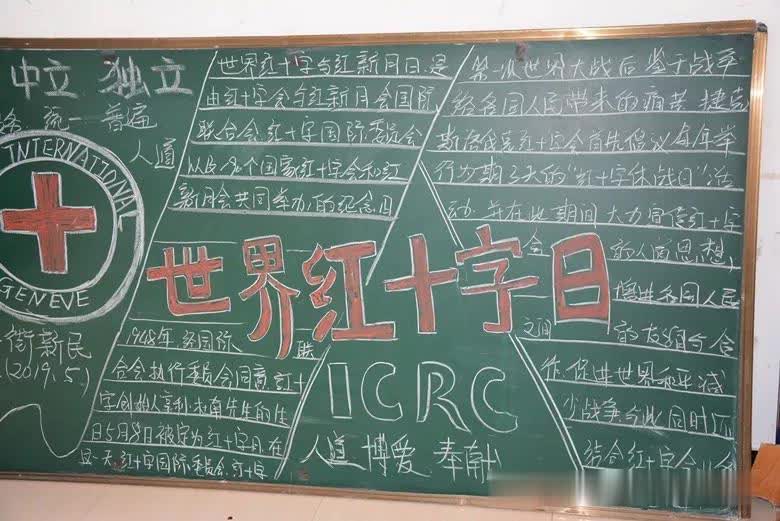 中立 独立
统一 普遍
人道
INTERNATIONAL
GENEVE
街新民
(2019.5.)
世界红十字与红新月日,是
由红十字会与红新月会国际
联合会,红十字国际委员会
以及 个国家红十字会和红
新月会共同举办的纪念日
世界红十字日
1948年,经国际联
合会执行委员会同意,红十
字创始人亨利·杜南先生的生
日5月8日被定为红十字日,在
这一天,红十字国际委员会,红十字
ICRC
人道 博爱 奉献
第一次世界大战后 鉴于战争
给各国人民带来的痛苦 捷克
斯洛伐克红十字会首先倡议每年举
行为期3天的"红十字休战日"活
动 并在此期间 大力宣传红十字
会的人道思想,
增进各国人民
之间的友谊与合
作,促进世界和平,减
少战争,与此同时还
结合红十字会